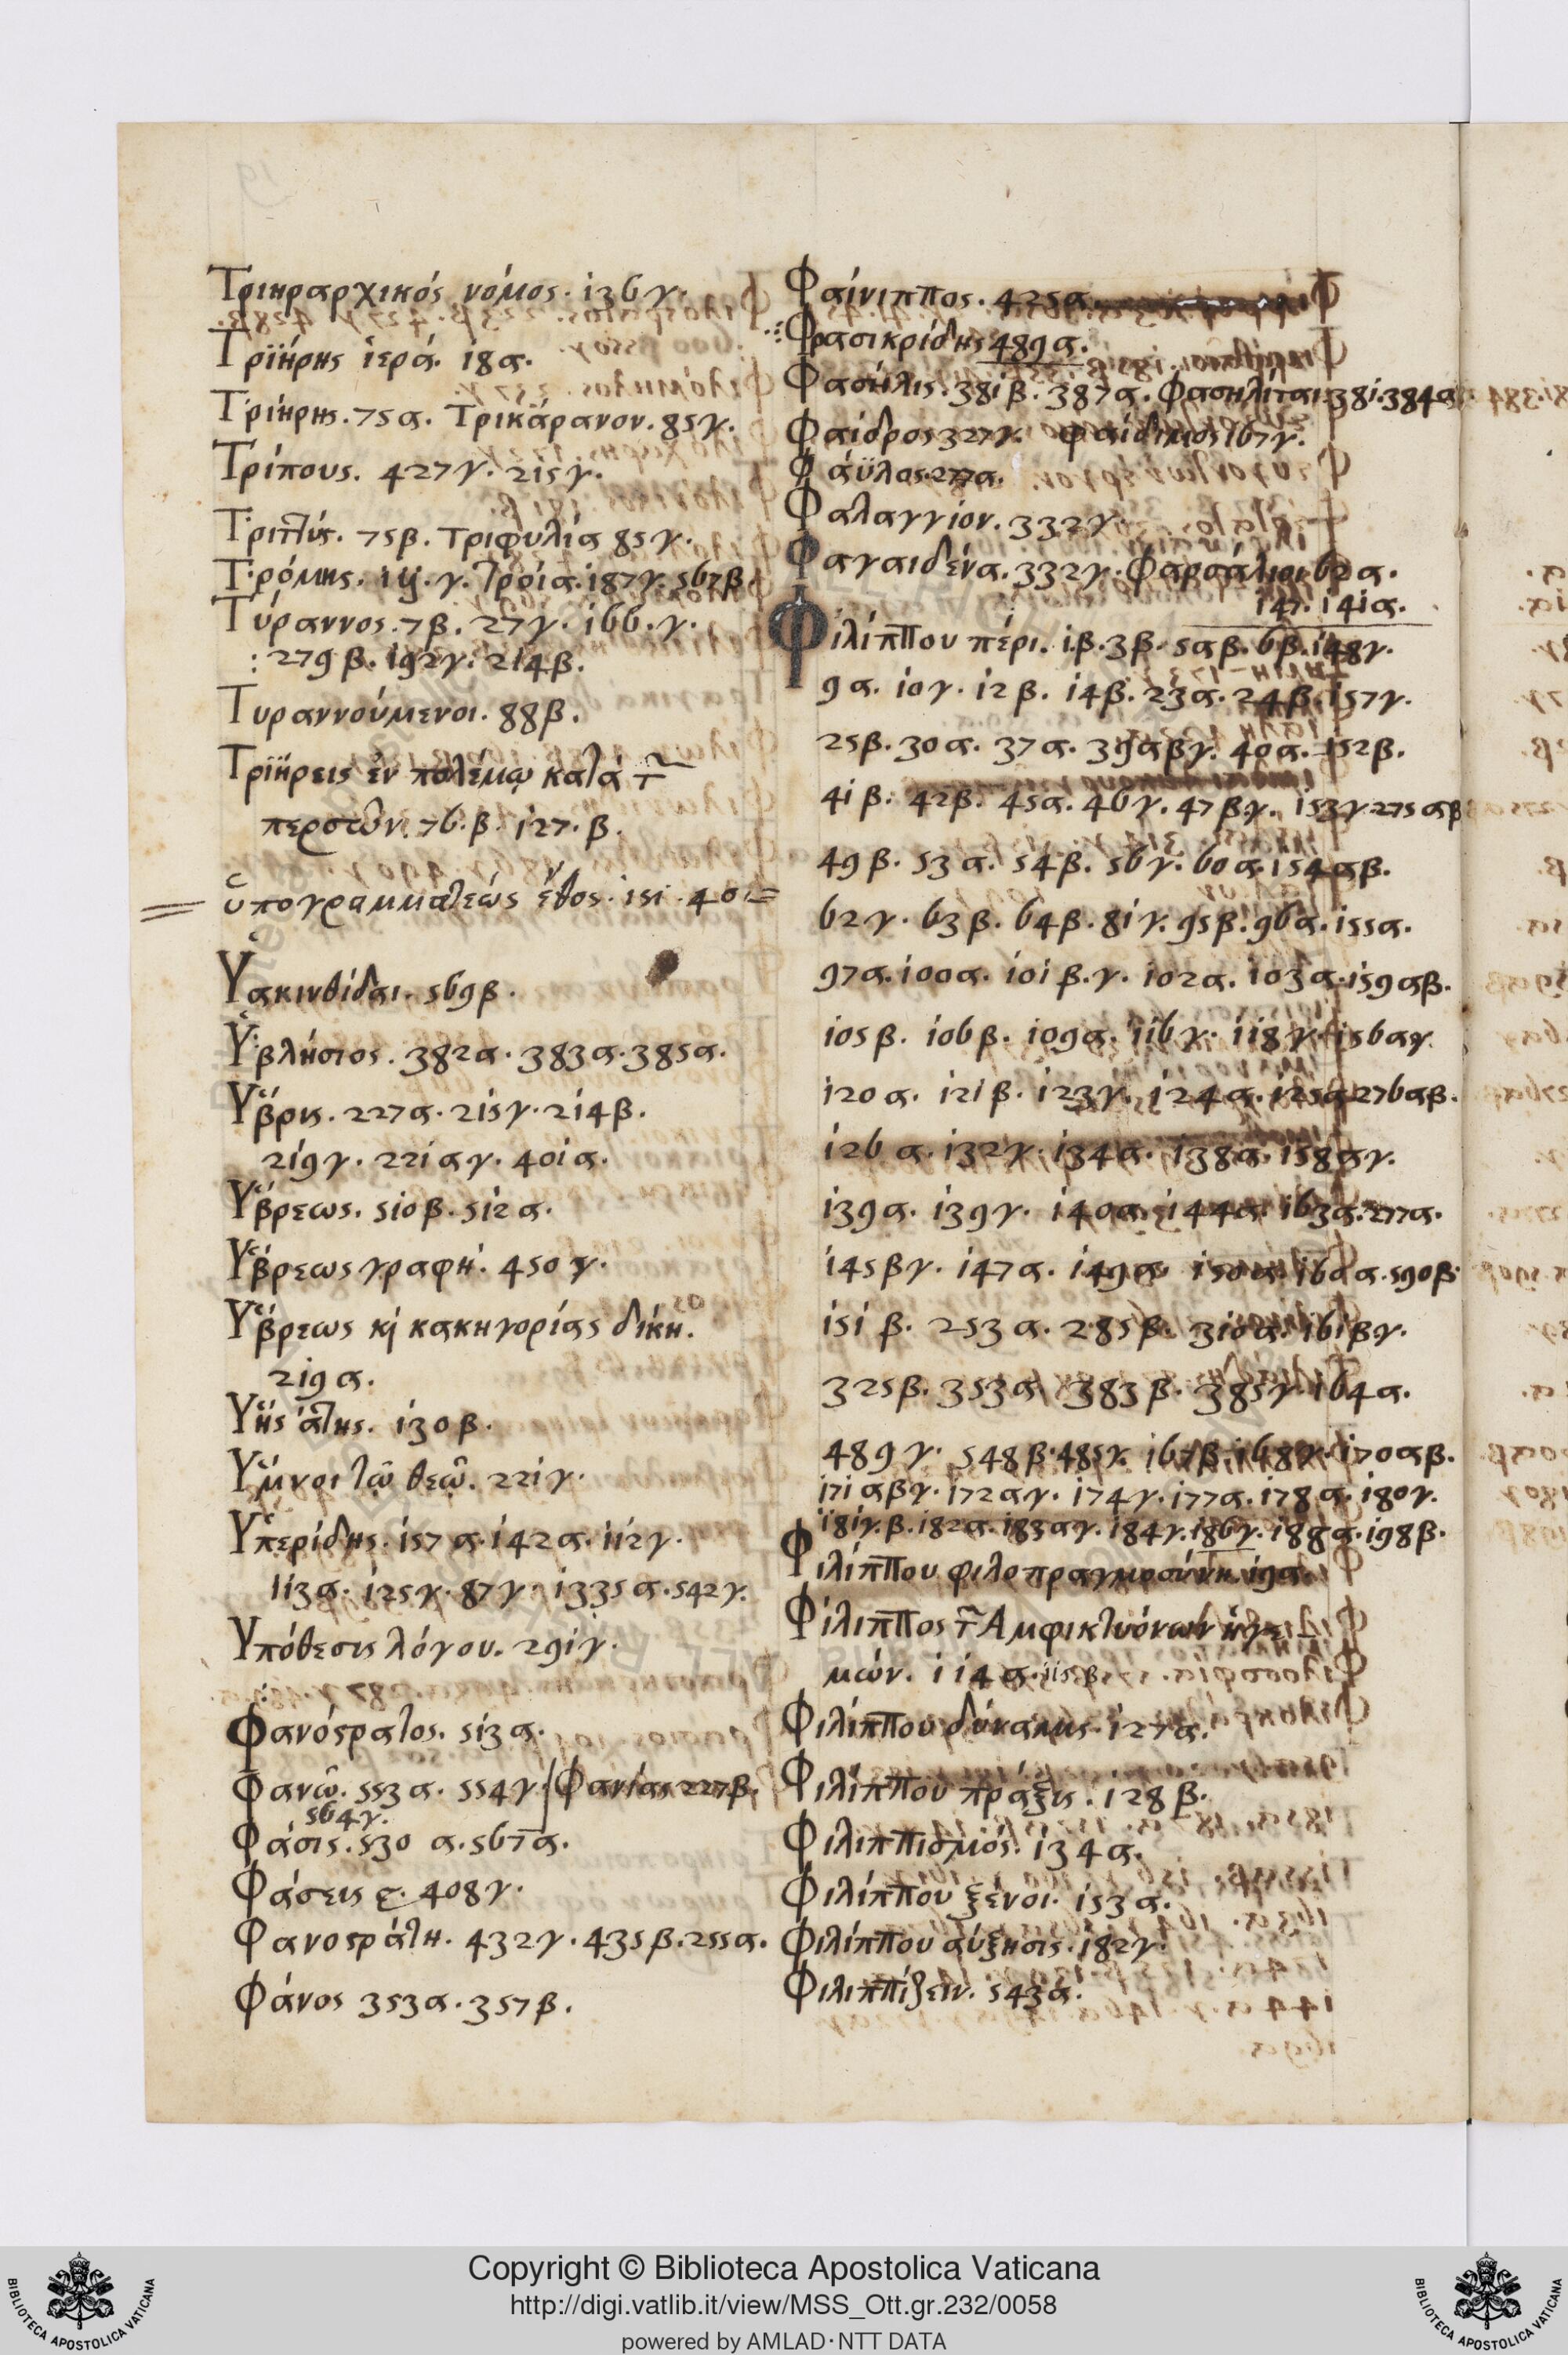 Τριηραρχικός νόμος. 136 γ.
Τριήρης ἱερά. 18 α.
Τριήρης. 75 α. Τρικάρανον. 85 γ.
Τρίπους. 427 γ. 215 γ.
Τριτ͂ύς. 75 β. Τριφυλία 85 γ.
Τρόμης. γ. Τροία. 187 γ. 567 β.
Τύραννος. 7 β. 27 γ. 166. γ.
: 279 β. 192 γ. 214 β.
Τυραννούμενοι. 88 β.
Τριήρεις ἐν πολέμῳ κατὰ τ῀
περσῶν. 76. β. 127. β.
ὑπογραμματέως ἔθος. 151. 40
Ὑακινθίδαι. 569 β.
Ὑβλήσιος. 382 α. 383 α. 385 α.
Ὕβρις. 227 α. 215 γ. 214 β.
219 γ. 221 α γ. 401 α.
Ὕβρεως. 510 β. 512 α.
Ὕβρεως γραφή. 450 γ.
Ὕβρεως κ̀ κακηγορίας δίκη.
219 α.
Ὕης ἄτης. 130 β.
Ὕμνοι τῷ θεῷ. 221 γ.
Ὑπερίδης. 157 α. 142 α. 112 γ.
113 α. 125 γ. 87 γ. 1335 α. 542 γ.
Ὑπόθεσις λόγου. 291 γ.
Φανόστρατος. 513 α.
Φανῶ. 553 α. 554 γ. Φανίας 227 β.
564 γ.
Φάσις. 530 α. 567 α.
Φάσεις 408 γ.
Φανοστράτη. 432 γ. 435 β. 255 α.
Φάνος 353 α. 357 β.
Φαίνιππος. 425 α.
Φρασικρίδης 489 α.
Φασήλις. 381 β. 387 α. Φασηλίται 381. 384 α
Φαίδρος 327 γ. Φαίδιμος 167 γ.
Φάϋλος. 277 α.
Φαλαγγίον. 332 γ.
Φαγαιδένα. 332 γ. Φαρσάλιοι 62 α.
147. 141 α.
Φιλίππου πέρι. 1. β. 3 β. 5 α β. 6 β. 148 γ.
9 α. 10 γ. 12 β. 14 β. 23 α. 24 β. 157 γ.
25 β. 30 α. 37 α. 39 α β γ. 40 α. 152 β.
41 β. 42 β. 45 α. 46 γ. 47 β γ. 153 γ. 275 α β
49 β. 53 α. 54 β. 56 γ. 60 α. 154 α β.
62 γ. 63 β. 64 β. 81 γ. 95 β. 96 α. 155 α.
97 α. 100 α. 101 β. γ. 102 α. 103 α. 159 α β.
105 β. 106 β. 109 α. 116 γ. 118 γ. 156 α γ.
120 α. 121 β. 123 γ. 124 α. 125 α 276 α β.
126 α. 132 γ. 134 α. 138 α. 158 α γ.
139 α. 139 γ. 140 α. 144 α 163 α. 277 α.
145 β γ. 147 α. 149 α. 150 α. 160 α. 590 β.
151 β. 253 α. 285 β. 310 α. 161 β γ.
325 β. 353 α 383 β. 385 γ. 164 α.
489 γ. 548 β. 485 γ. 167 β. 168 γ. 170 α β.
171 α β γ. 172 α γ. 174 γ. 177 α. 178 α. 180 γ.
181 γ. β. 182 α. 183 α γ. 184 γ. 186 γ. 188 α. 198 β.
Φιλίππου φιλοπραγμοσύνη. 19 α.
Φίλιππος τ῀ Ἀμφικτυόνων ἡγε
μών. 114 α. 115 β.
Φιλίππου δύναμις. 127 α.
Φιλίππου πράξις. 128 β.
Φιλιππισμός. 134 α.
Φιλίππου ξένοι. 153 α.
Φιλίππου αύξησις. 182 γ.
Φιλιππίζειν. 543 α.
Copyright © Biblioteca Apostolica Vaticana
http://digi.vatlib.it/view/MSS_Ott.gr.232/0058
powered by AMLAD·NTT DATA
BIBLIOTECA APOSTOLICA VATICANA
BIBLIOTECA APOSTOLICA VATICANA